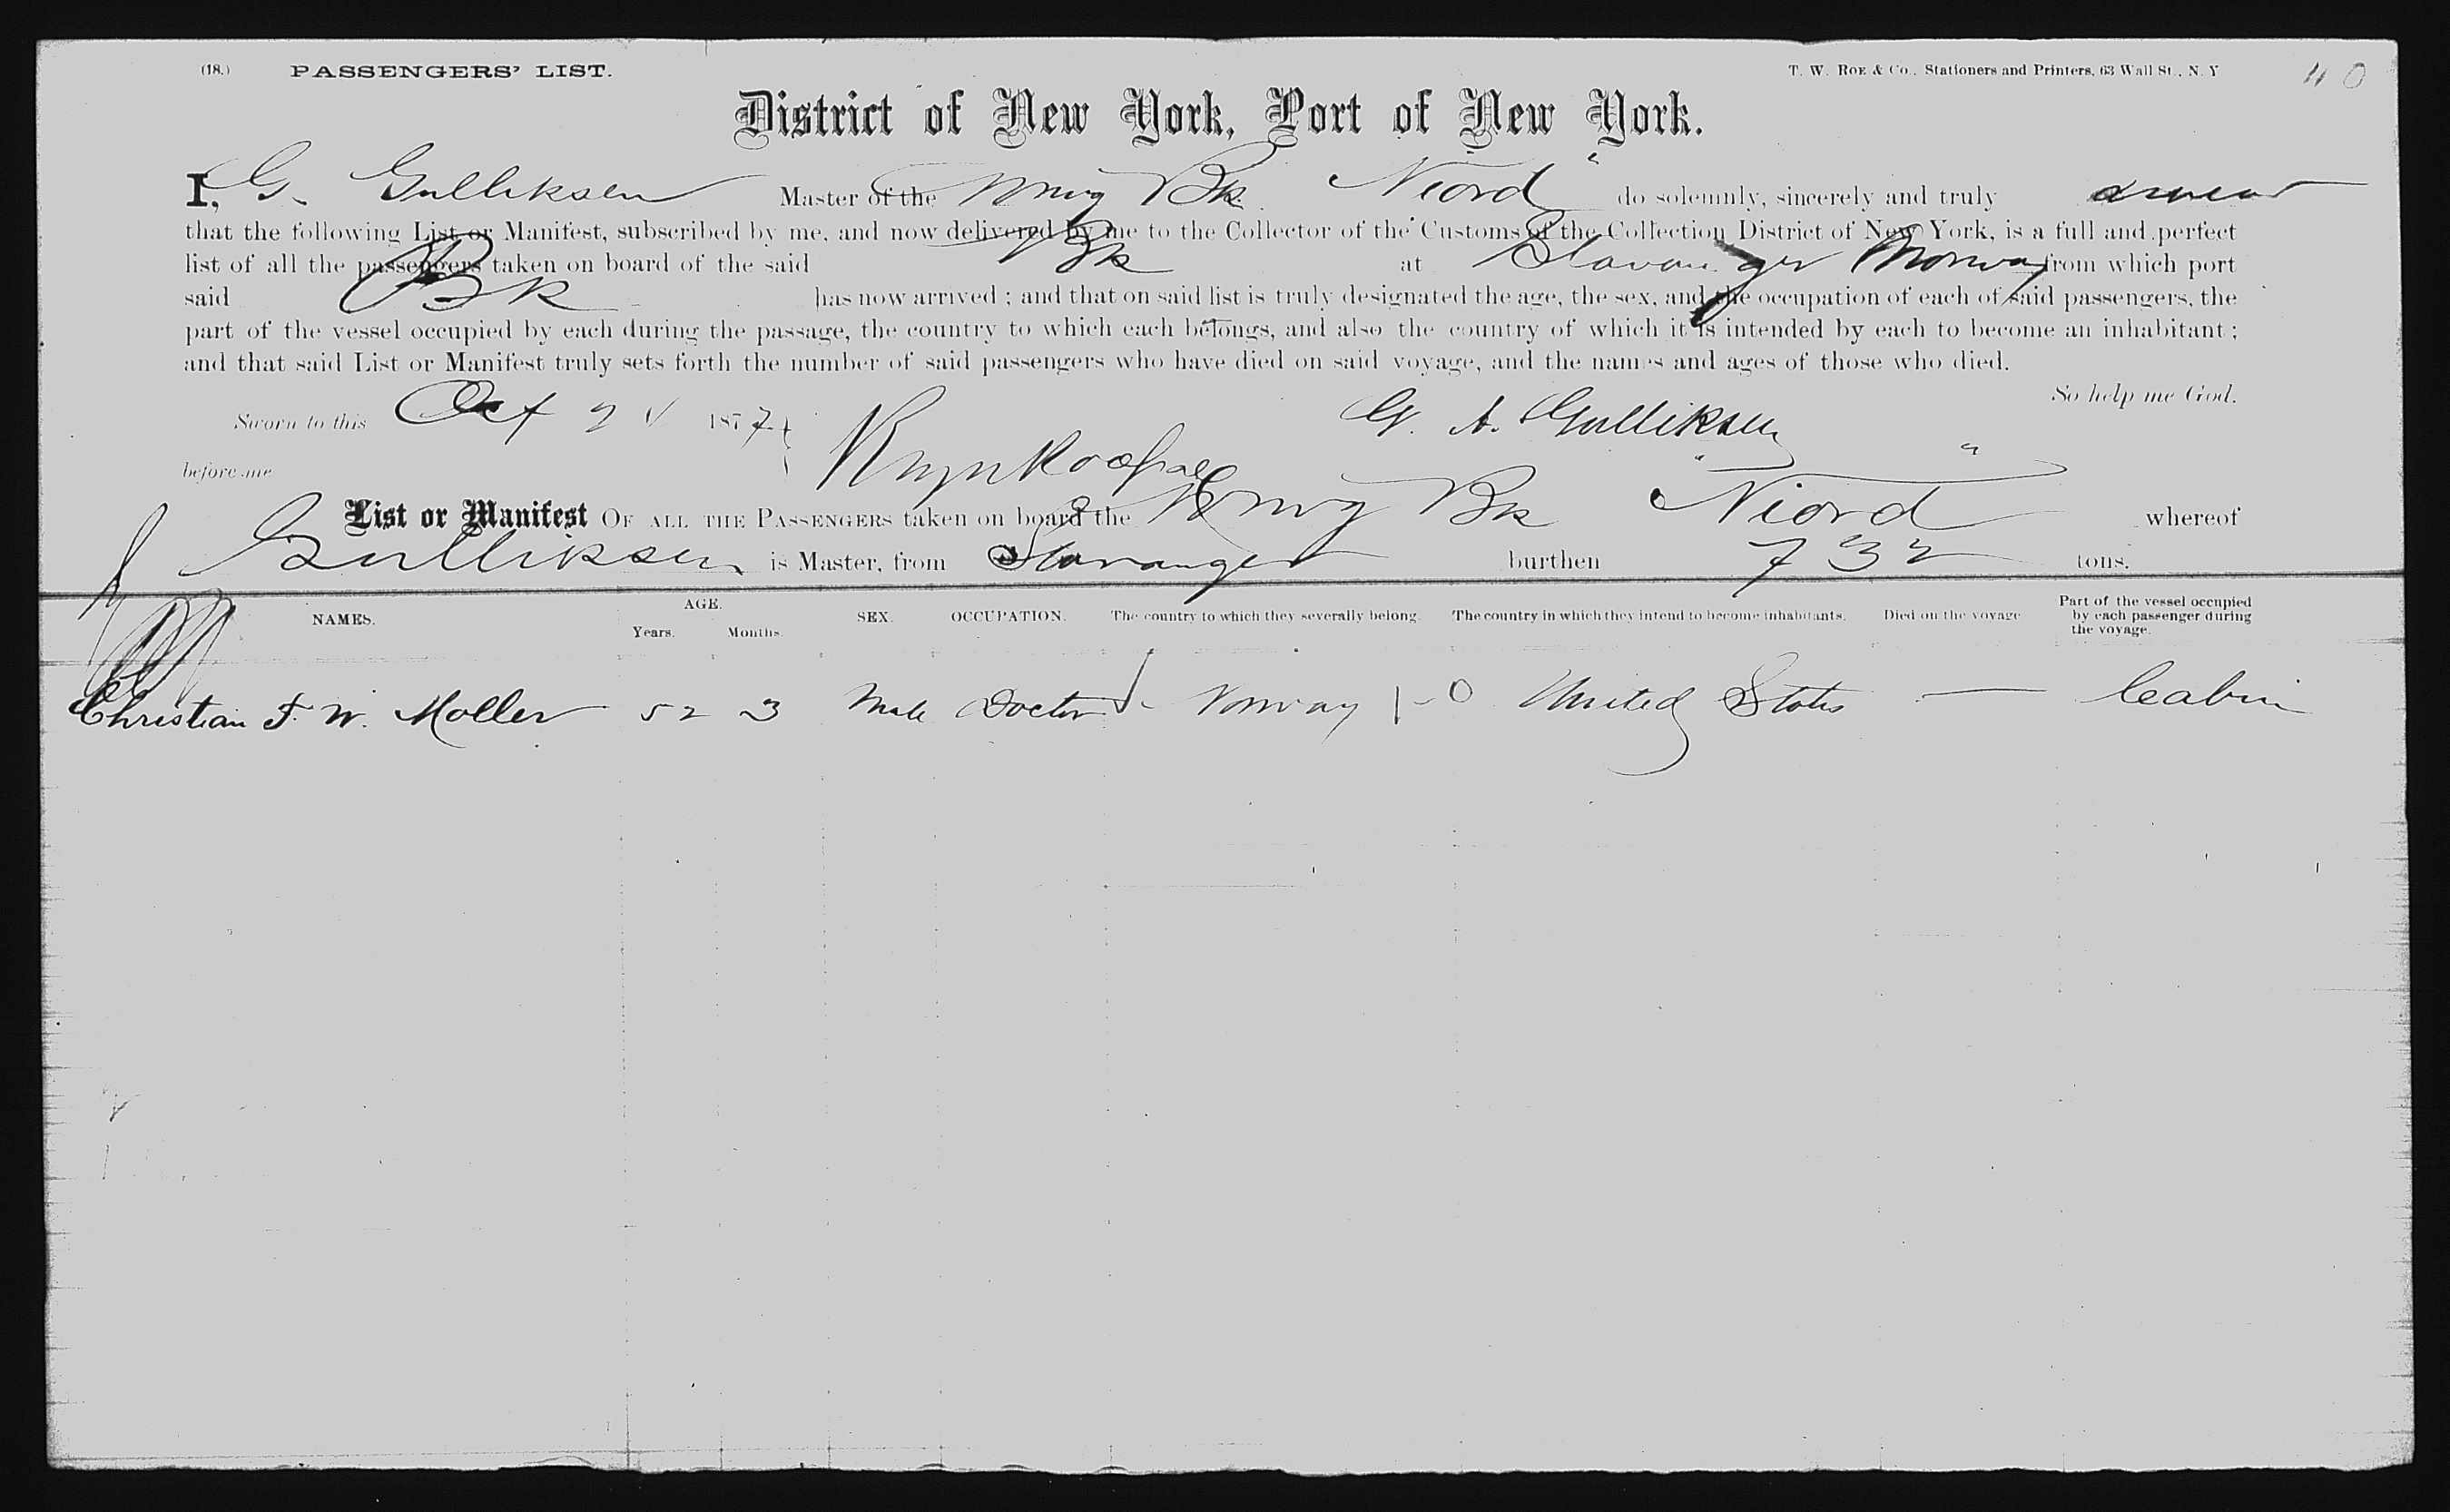 (18.) PASSENGERS' LIST. T. W. Roe & Co., Stationers and Printers, 63 Wall St., N. Y 110
District of New York, Port of New York.
I, G. Gulliksen Master of the Norwg Bk. "Niord" do solemnly, sincerely and truly swear
that the following List or Manifest, subscribed by me, and now delivered by me to the Collector of the Customs of the Collection District of New York, is a full and perfect
list of all the passengers taken on board of the said Bk at Stavanger Norway from which port
said Bk has now arrived ; and that on said list is truly designated the age, the sex, and the occupation of each of said passengers, the
part of the vessel occupied by each during the passage, the country to which each belongs, and also the country of which it is intended by each to become an inhabitant ;
and that said List or Manifest truly sets forth the number of said passengers who have died on said voyage, and the names and ages of those who died.
So help me God.
Sworn to this Oct 1877 G. A. Gulliksen
before me
List or Manifest OF ALL THE PASSENGERS taken on board the Norwg Bk "Niord" whereof
Gulliksen is Master, from Stavanger burthen 732 tons.
NAMES. AGE. Years. Months. SEX. OCCUPATION. The country to which they severally belong. The country in which they intend to become inhabitants. Died on the voyage Part of the vessel occupied by each passenger during the voyage.
Christian F. W. Moller 52 3 Male Doctor Norway 1-0 United States — Cabin